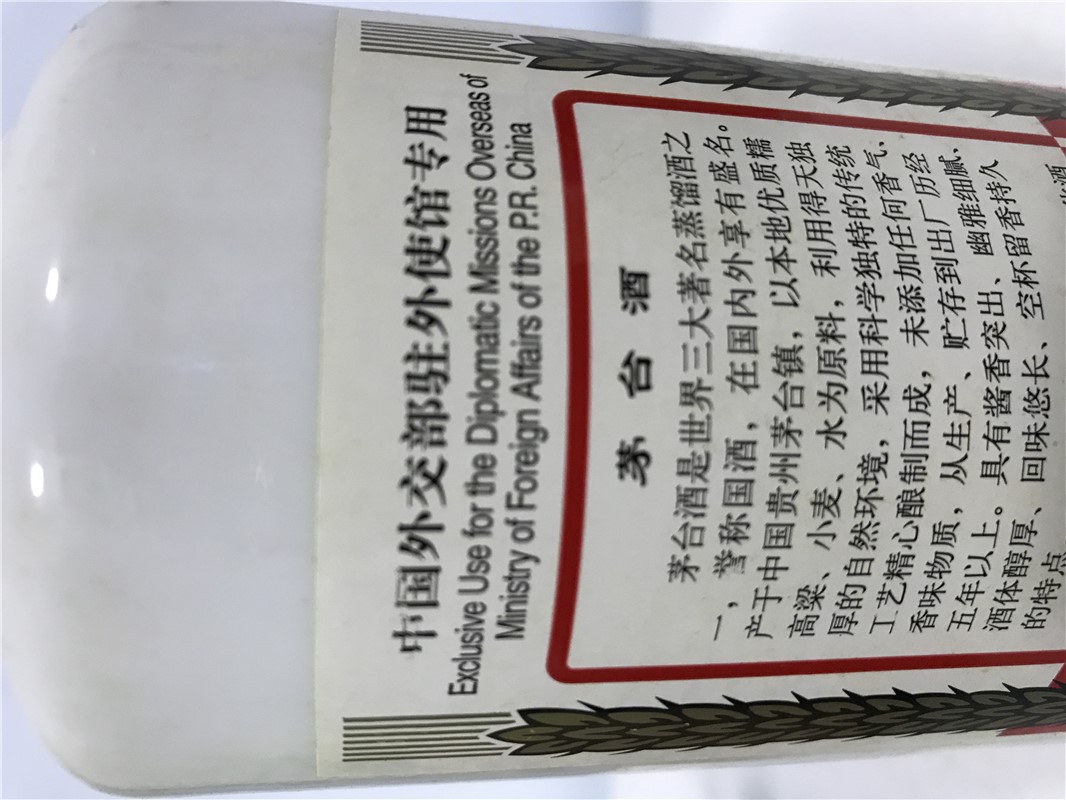 中国外交部驻外使馆专用
Exclusive Use for the Diplomatic Missions Overseas of
Ministry of Foreign Affairs of the P.R. China
茅台酒
茅台酒是世界三大著名蒸馏酒之
一，誉称国酒，在国内外享有盛名。
产于中国贵州茅台镇，以本地优质糯
高粱、小麦、水为原料，利用得天独
厚的自然环境，采用科学独特的传统
工艺精心酿制而成，未添加任何香气、
香味物质，从生产、贮存到出厂历经
五年以上。具有酱香突出、幽雅细腻、
酒体醇厚、回味悠长、空杯留香持久
的特点